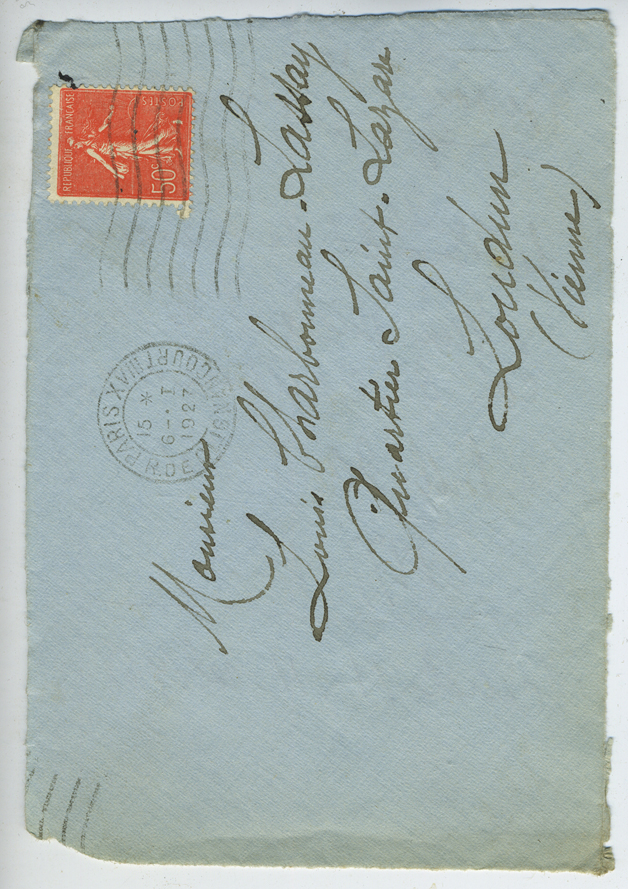 REPUBLIQUE FRANÇAISE
POSTES
50c
PARIS XVI
15 *
6-I
1927
Monsieur
Louis Charbonneau-Lassay
Quartier Saint-Lazare
Loudun
(Vienne)